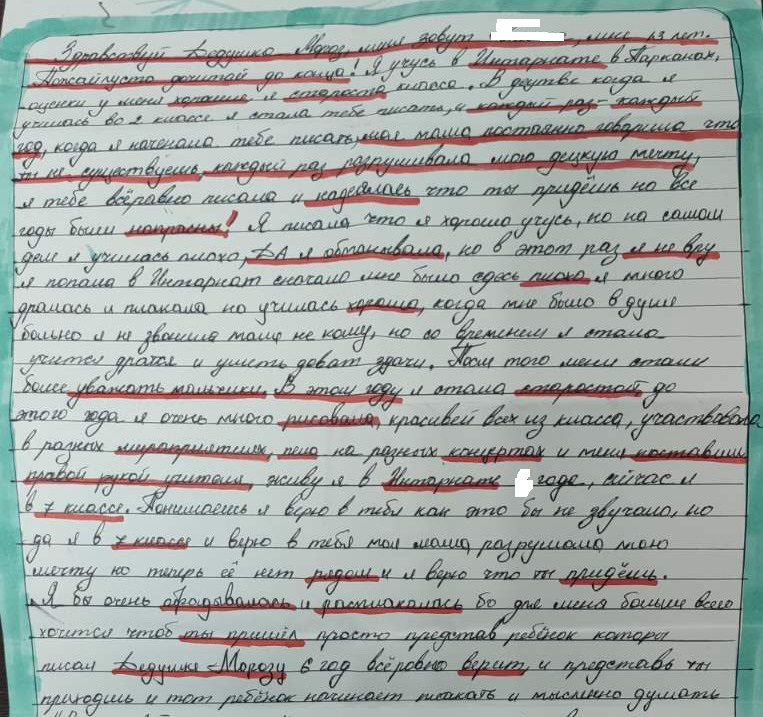 Здравствуй Дедушка Мороз, меня зовут , мне 13 лет.
Пожайлуста дочитай до конца! Я учусь в Интарнате в Парканах,
оценки у меня хорошие я староста класса. В децтве когда я
училась во 2 классе я стала тебе писать, и каждый раз- каждый
год, когда я наченала тебе писать, моя мама постоянно говорила что
ты не существуешь, каждый раз разрушивала мою децкую мечту,
я тебе всёравно писала и надеялась что ты придёшь но все
годы были напрасны! Я писала что я хорошо учусь, но на самом
деле я училась плохо, ДА я обманывала, но в этот раз я не вру
я попала в Интарнат сначало мне было сдесь плохо я много
дралась и плакала но училась хорошо, когда мне было в душе
больно я не звонила маме не кому, но со временем я стала
учится дратся и уметь доват здачи. Посли того меня стали
более уважать мальчики. В этом году я стала старостой, до
этого года я очень много рисовала, красивей всех из класса, участвовала
в разных мероприятиях, пела на разных концертах и меня поставили
правой рукой учителя, живу я в Интарнате года, сейчас я
в 7 классе. Понимаешь я верю в тебя как это бы не звучало, но
да я в 7 классе и верю в тебя моя мама разрушала мою
мечту но теперь её нет рядом и я верю что ты придёшь.
Я бы очень обрадывалась и расплакалась бо для меня больше всего
хочится чтоб ты пришёл просто представ ребёнок которы
писал Дедушке Морозу 6 год всёровно верит, и представь ты
приходишь и тот ребёнок начинает плакать и мысленно думать